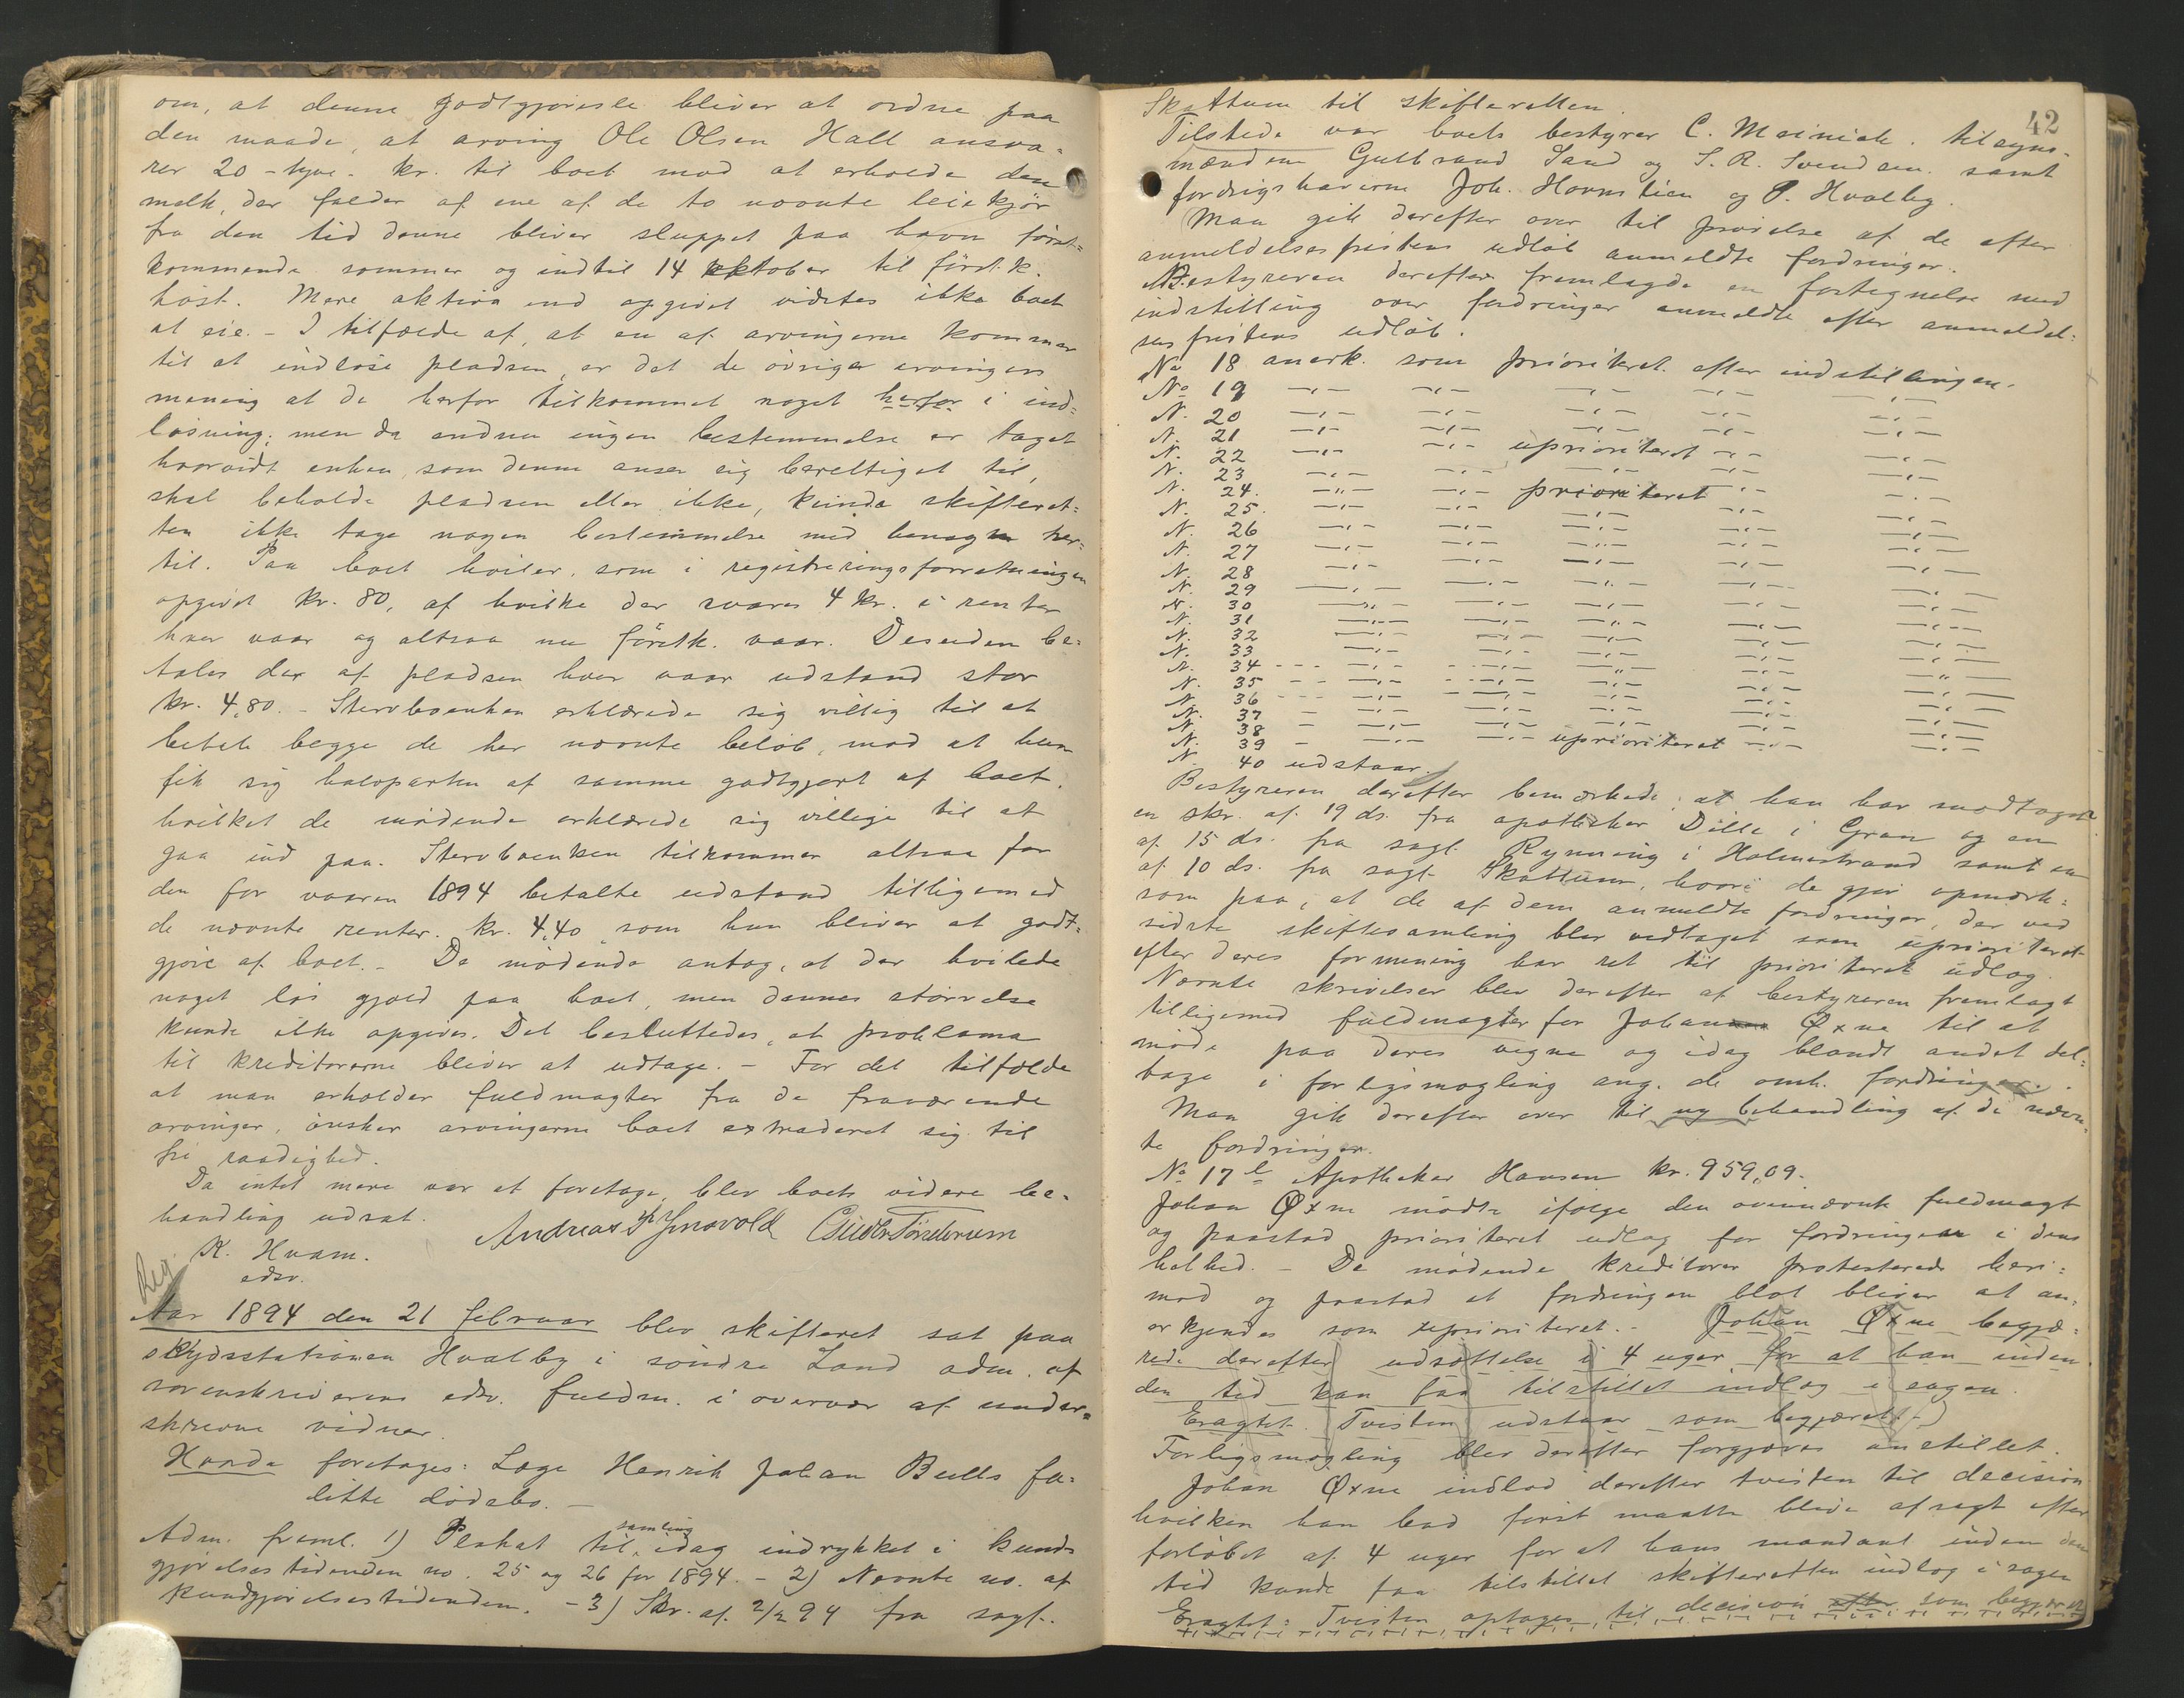 om, at denne godtgjörelse bliver at ordne paa
den maade, at arving Ole Olsen Hall ansva=
rer 20 - tyve - kr. til boet mod at erholde den
melk, der falder af ene af de to nævnte leiekjör
fra den tid denne bliver sluppet paa havn först=
kommende sommer og indtil 14 oktober til förstk.
höst. Mere aktiva end opgivet vidstes ikke boet
at eie. - I tilfælde af, at en af arvingerne kommer
til at indlöse pladsen, er det de övrige arvingers
mening at de herfor tilkommet noget herfor i ind=
lösning; men da endnu ingen bestemmelse er taget
hvorvidt enken, som denne anser sig berettiget til,
skal beholde pladsen eller ikke, kunde skifteret=
ten ikke tage nogen bestemmelse med hensyn her=
til. Paa boet hviler, som i registreringsforretningen
opgivet kr. 80, af hvilke der svares 4 kr. i renter
hver vaar og altsaa nu förstk. vaar. Desuden be=
tales der af pladsen hver vaar udstand stor
kr. 4,80. - Stervboenken erklærede sig villig til at
betale begge de her nævnte belöb, mod at hun
fik sig halvparten af samme godtgjort af boet,
hvilket de mödende erklærede sig villige til at
gaa ind paa. Stervboenken tilkommer altsaa for
den for vaaren 1894 betalte udstand tilligemed
de nævnte renter kr. 4,40, som hun bliver at godt=
gjöre af boet. - De mödende antog, at der hvilede
noget lös gjæld paa boet, men dennes störrelse
kunde ikke opgives. Det besluttedes, at proklama
til kreditorerne bliver at udtage. - For det tilfælde
at man erholder fuldmagter fra de fraværende
arvinger, önsker arvingerne boet extraderet sig til
fri raadighed.
Da intet mere var at foretage, blev boets videre be=
handling udsat.
K. Hvam.
edsv.
Andreas
Reg.
Aar 1894 den 21 februar blev skifteret sat paa
skydsstationen Hvalby i söndre Land adm. af
sorenskriverens edsv. fuldm. i overvær af under=
skrevne vidner.
Hvorda foretoges: Læge Henrik Johan Bulls fa=
litte dödsbo. -
Adm. freml. 1) Plakat til samling idag indrykket i kund=
gjörelsestidenden no. 25 og 26 for 1894. - 2) Nævnte no. af
kundgjörelsestidenden. - 3) Skr. af 2/2 94 fra sagf.
42
Skattum til skifteretten.
Tilstede var boets bestyrer C. Meinich. tilsyns-
mændene Gulbrand Sand og S. R. Svendsen. samt
fordrigshaverne Joh. Hovmstien og P. Hvalby.
Man gik derefter over til prövelse af de efter
anmeldelsesfristens udlöb anmeldte fordringer.
Bestyreren derefter fremlagde en fortegnelse med
indstilling over fordringer anmeldte efter anmeldel=
sesfristens udlöb.
No 18 anerk. som prioriteret efter indstillingen.
No 19 -"- -"- -"- -"- -"-
N. 20 -"- -"- -"- -"- -"-
N. 21 -"- -"- -"- -"- -"-
N. 22 -"- -"- uprioriteret -"- -"-
N. 23 -"- -"- -"- -"- -"-
N. 24. -"- -"- prioriteret -"- -"-
N. 25. -"- -"- -"- -"- -"-
N. 26 -"- -"- -"- -"- -"-
N. 27 -"- -"- -"- -"- -"-
N. 28 -"- -"- -"- -"- -"-
N. 29 -"- -"- -"- -"- -"-
N. 30 -"- -"- -"- -"- -"-
N. 31 -"- -"- -"- -"- -"-
N. 32 -"- -"- -"- -"- -"-
N. 33 -"- -"- -"- -"- -"-
N. 34 -"- -"- -"- -"- -"-
N. 35 -"- -"- -"- -"- -"-
N. 36 -"- -"- -"- -"- -"-
N. 37 -"- -"- -"- -"- -"-
N. 38 -"- -"- -"- -"- -"-
N. 39 -"- -"- uprioriteret -"- -"-
N. 40 udstaar.
Bestyreren derefter bemærkede, at han har modtaget
en skr. af 19 ds. fra apotheker Dille i Gran og en
af 15 ds. fra sagf. Rynning i Holmestrand samt en
af 10 ds. fra sagf. Skattum, hvori de gjör opmærk=
som paa, at de af dem anmeldte fordringer, der ved
sidste skiftesamling blev vedtaget som uprioriteret
efter deres formening har ret til prioriteret udlæg.
Nævnte skrivelser blev derefter af bestyreren fremlagt
tilligemed fuldmagter for Johan Øxne til at
möde paa deres vegne og idag blandt andet del=
tage i forligsmægling ang. de omh. fordringer.
Man gik derefter over til ny behandling af de nævn=
te fordringer.
No 17 l Apotheker Hansen kr. 959,09.
Johan Øxne mödte ifölge den ovennævnte fuldmagt
og paastod prioriteret udlæg for fordringen i dens
helhed. - De mödende kreditorer protesterede heri=
mod og paastod at fordringen blot bliver at an=
erkjendes som uprioriteret. - Johan Øxne begjæ=
rede derefter udsættelse i 4 uger for at han inden
den tid kan faa tilstillet indlæg i sagen.
Eragtet. Tvisten udstaar som begjæret. -)
Forligsmægling blev derefter forgjæves anstillet.
Johan Øxne indlod derefter tvisten til decision
hvilken han bad först maatte blive afsagt efter
forlöbet af 4 uger for at hans mandant inden den
tid kunde faa tilstillet skifteretten indlæg i sagen
Eragtet: Tvisten optages til decision efter som begjæret